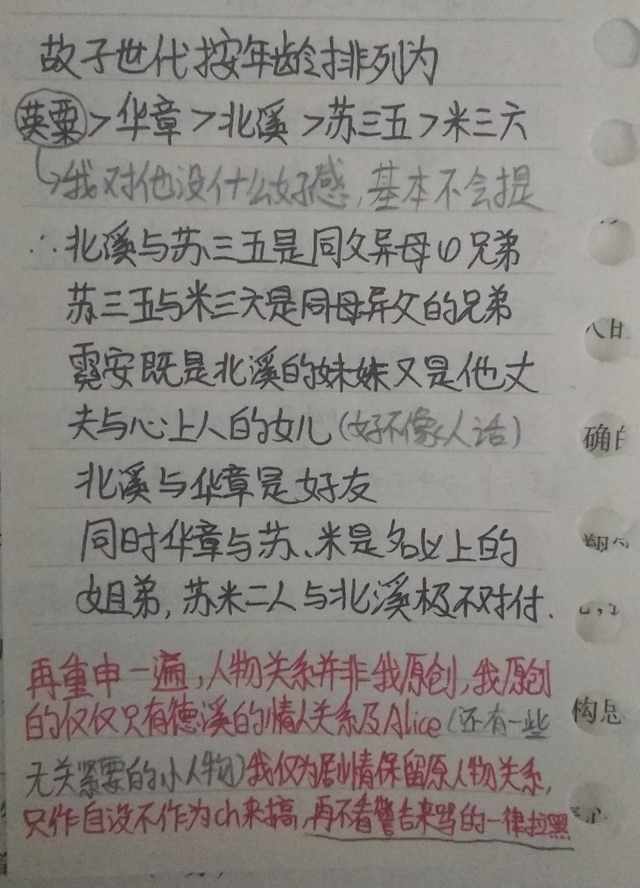 故子世代按年龄排列为
英粟>华章>北溪>苏三五>米三六
我对他没什么好感,基本不会提
∴北溪与苏三五是同父异母の兄弟
苏三五与米三六是同母异父的兄弟
霓安既是北溪的妹妹又是他丈
夫与心上人的女儿(好不像人话)
北溪与华章是好友
同时华章与苏、米是名义上的
姐弟,苏米二人与北溪极不对付.
再重申一遍,人物关系并非我原创,我原创
的仅仅只有德溪的情人关系及Alice(还有一些
无关紧要的小人物)我仅为剧情保留原人物关系,
只作自设不作为ch来搞,再不看警告来骂的一律拉黑
确
构